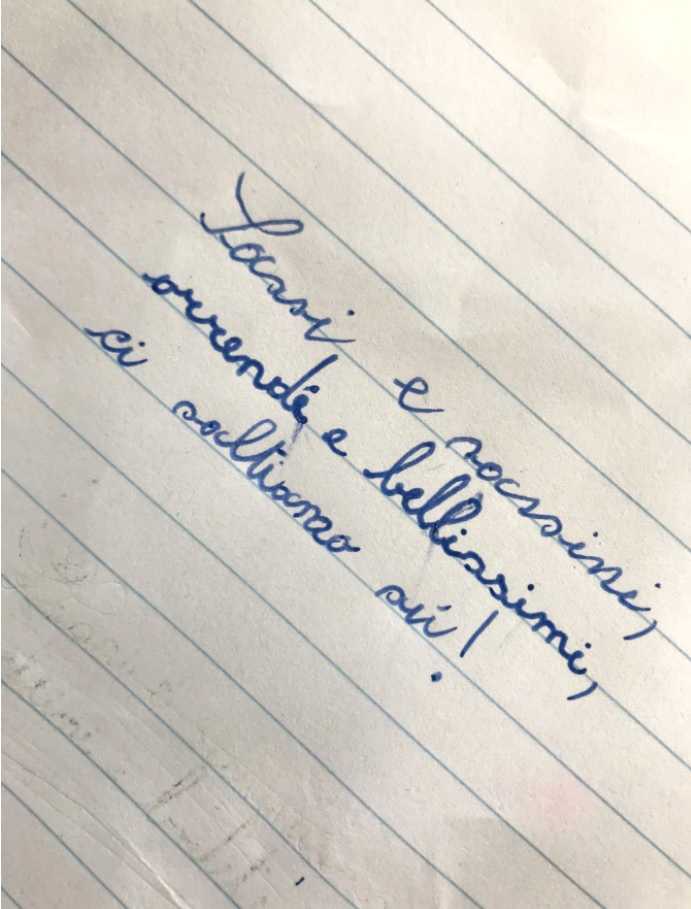 Sassi e sassini,
orrendi e bellissimi,
ci saltiamo su!